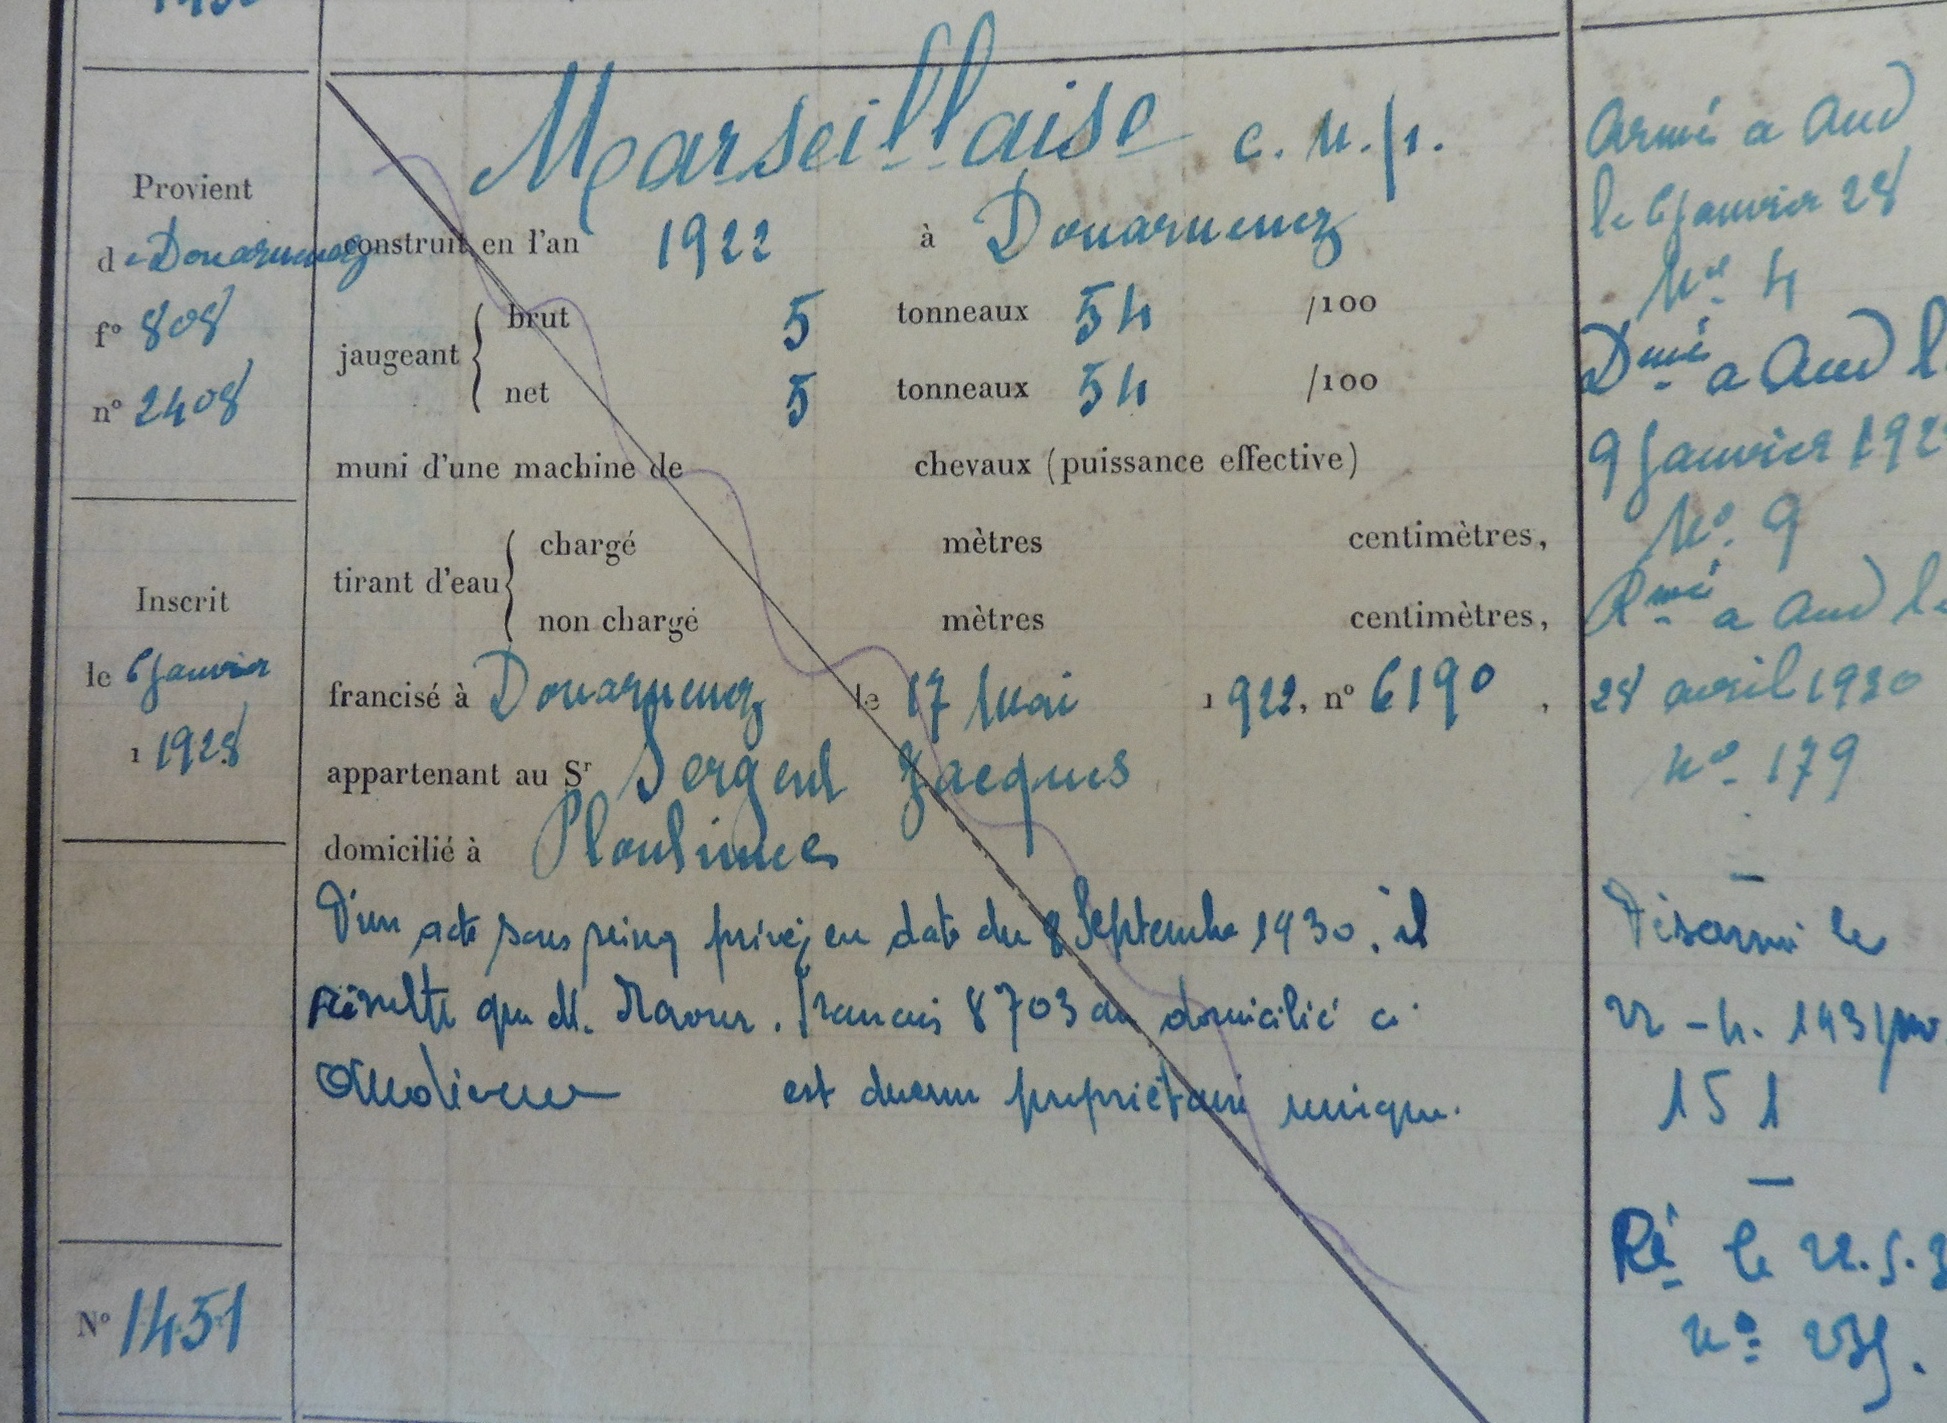 Provient
de Douarnenez
fo 808
no 2408
Inscrit
le 6 Janvier
1 1928
No 1451
Marseillaise c. n. p.
construit en l'an 1922 à Douarnenez
jaugeant { brut 5 tonneaux 54 /100
net 5 tonneaux 54 /100
muni d'une machine de chevaux (puissance effective)
tirant d'eau { chargé mètres centimètres,
non chargé mètres centimètres,
francisé à Douarnenez le 17 Mai 1922, no 6190,
appartenant au Sr Sergent Jacques
domicilié à Plouhinec
D'un acte sous seing privé, en date du 8 Septembre 1930, il
résulte que M. Francois 8703 au domicilié a
Audierne est devenu propriétaire unique.
Armé a Aud
le 6 Janvier 28
No 4
Dmé a Aud l
9 Janvier 192
No. 9
Rmé a Aud le
28 avril 1930
no 179
Désarmé le
22 - 4. 1931
151
Ré le 22.5.3
no